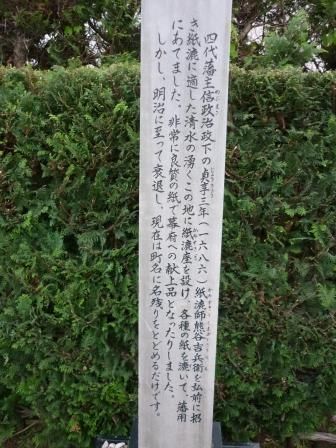 四代藩主信政治政下の貞享三年(一六八六)紙漉師熊谷吉兵衛を弘前に招
き紙漉に適した清水の湧くこの地に紙漉座を設け、各種の紙を漉いて、藩用
にあてました。非常に良質の紙で幕府への献上品となったりしました。
しかし、明治に至って衰退し、現在は町名に名残りをとどめるだけです。